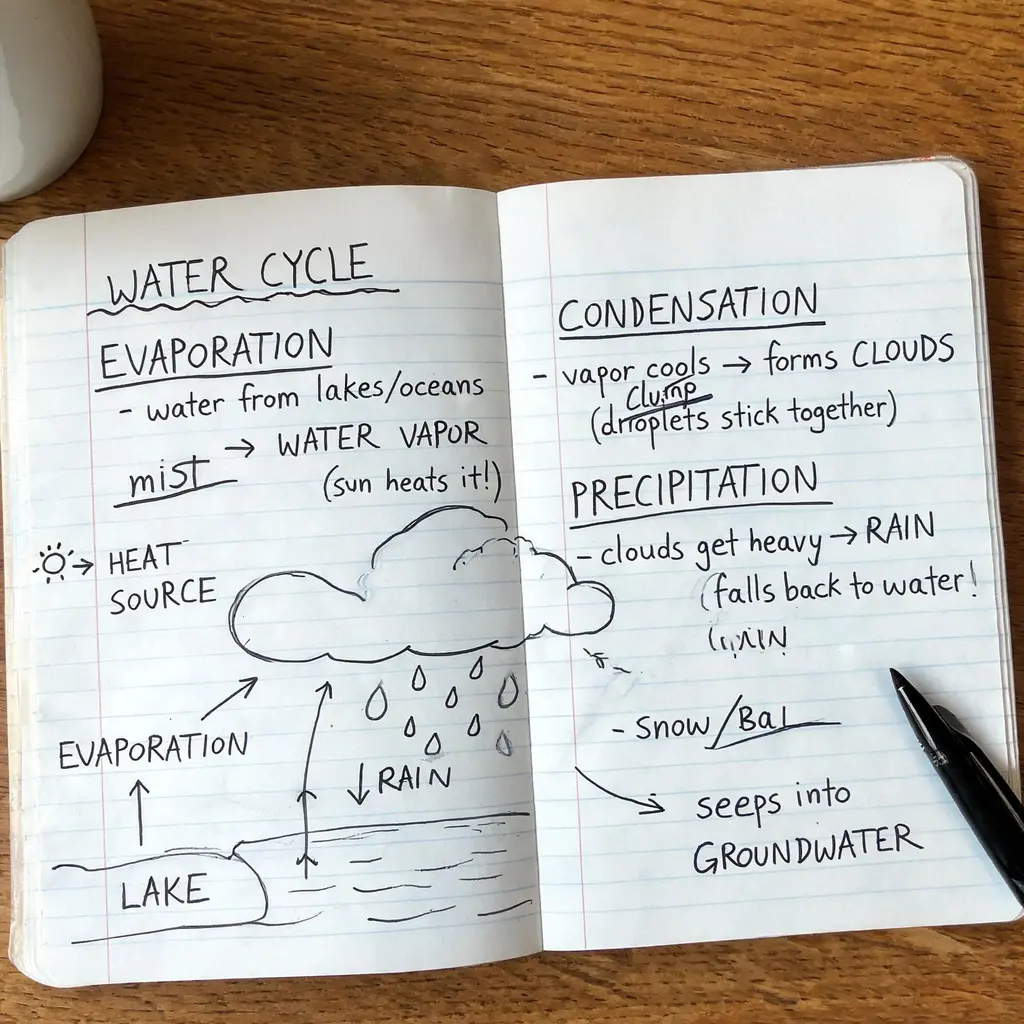 WATER CYCLE
EVAPORATION
- water from lakes/oceans
→ WATER VAPOR
mist
(sun heats it!)
→ HEAT
SOURCE
EVAPORATION
↓ RAIN
LAKE
CONDENSATION
- vapor cools → forms CLOUDS
Clump
(droplets stick together)
PRECIPITATION
- clouds get heavy → RAIN
(falls back to water!
- Snow/Bal
seeps into
GROUNDWATER